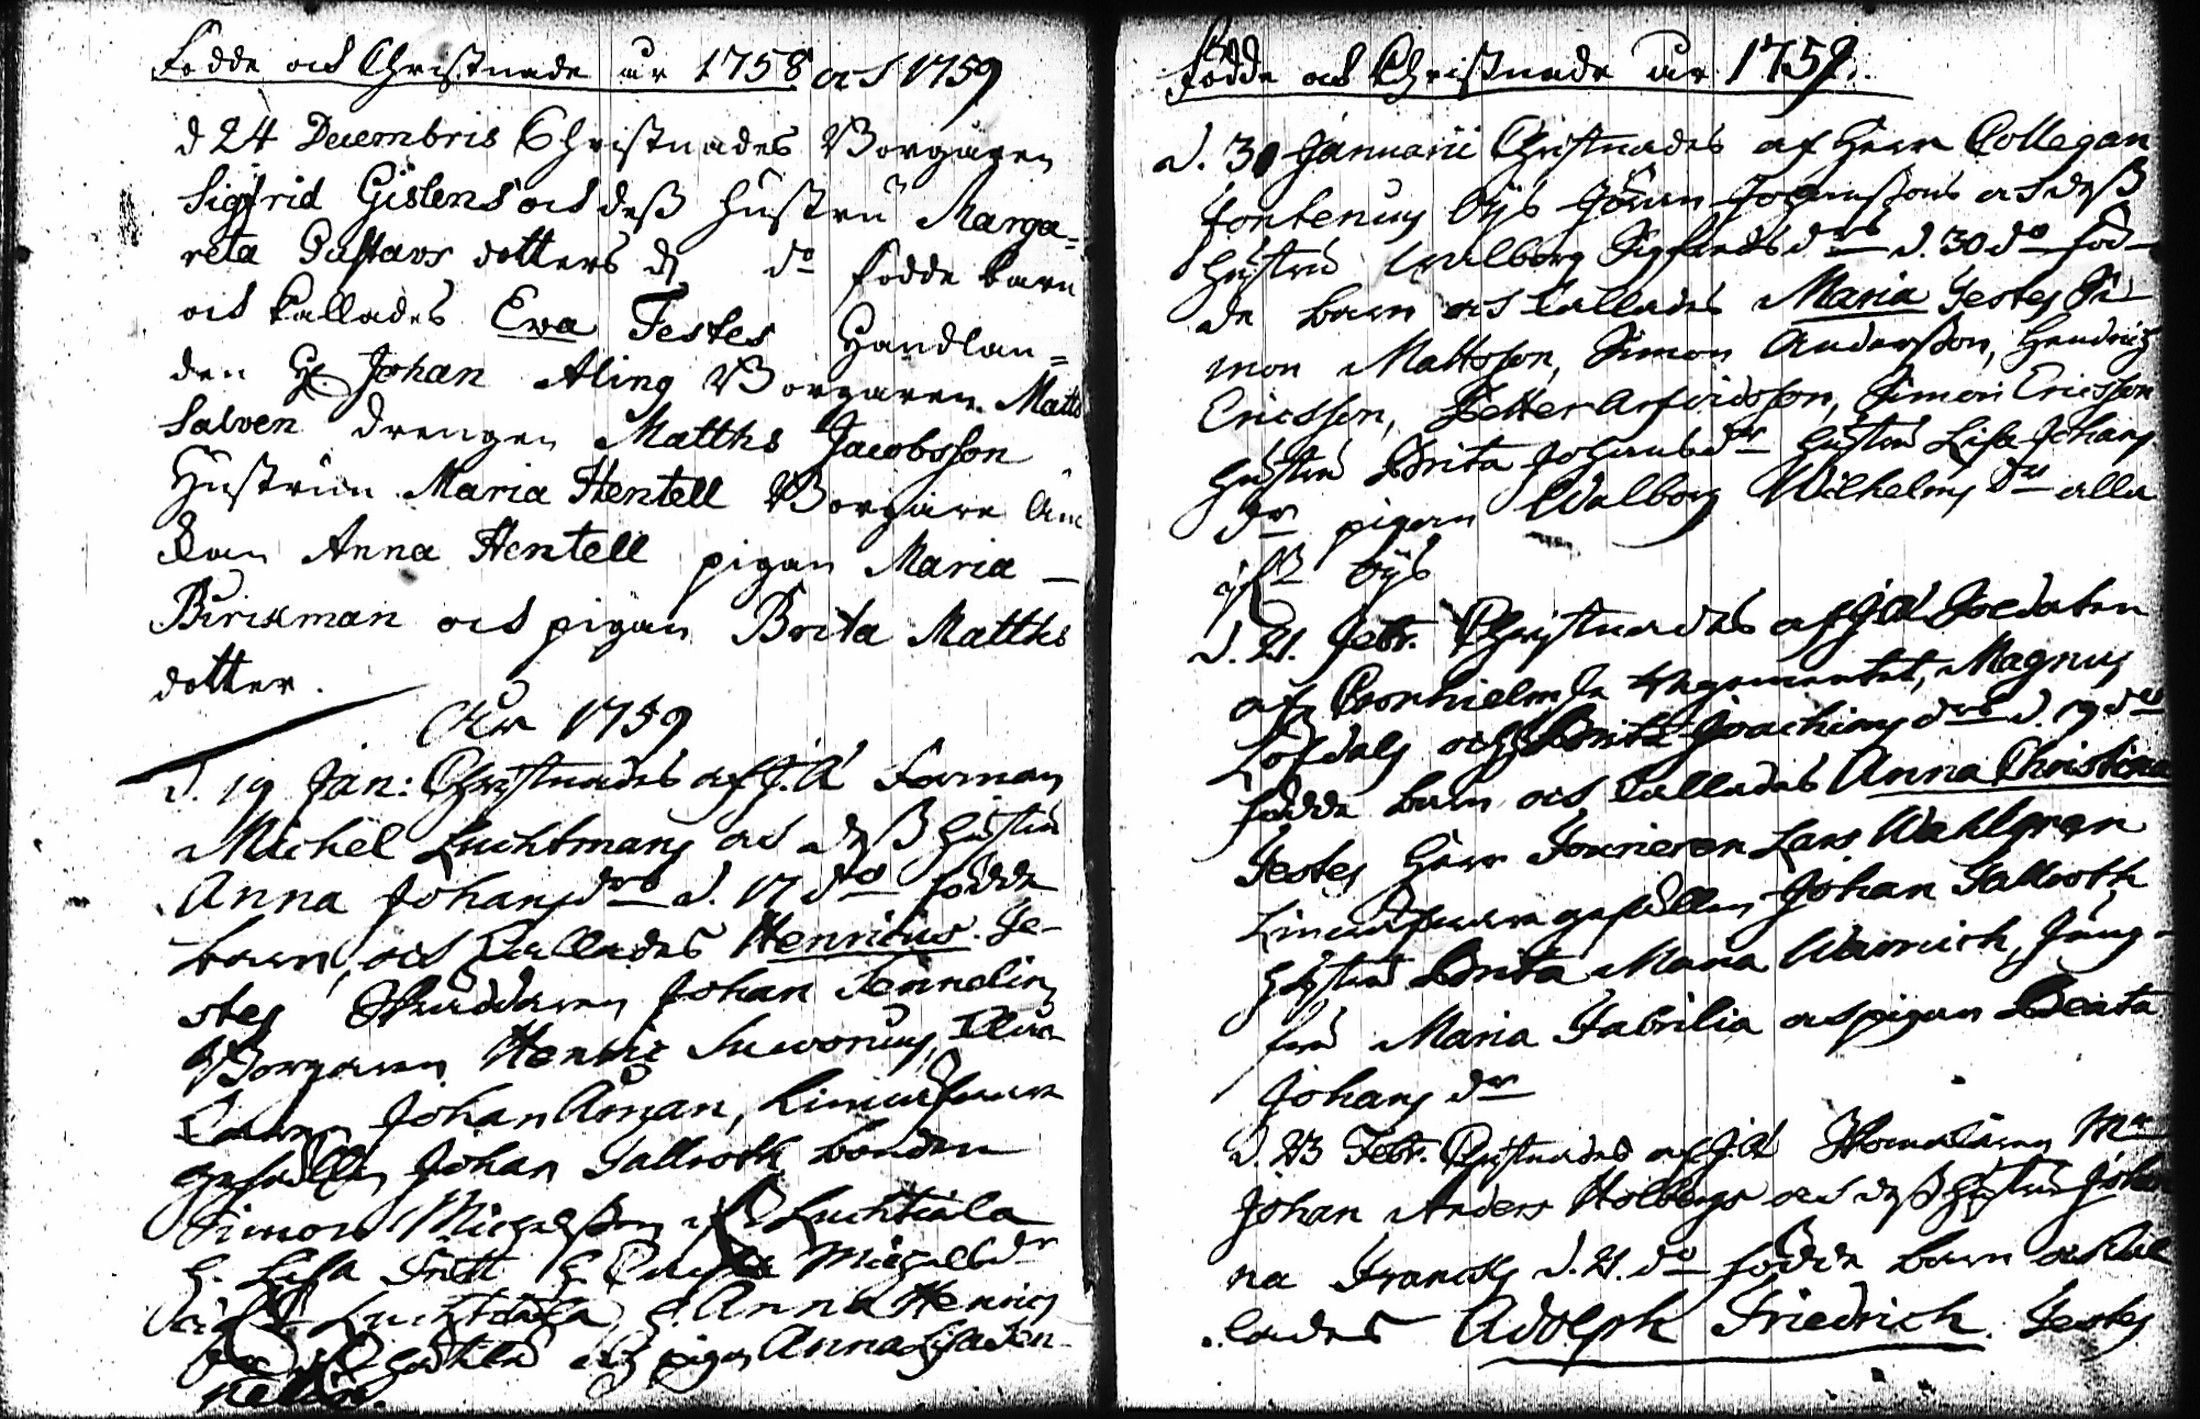 Födde och Christnade år 1758. och 1759
d 24 Decembris Christnades Borgaren
Sigfrid Gislens och deß hustru Marga=
reta Gustavs dotters d do födde barn
och kallades Ewa Testes Handlan=
den H. Johan Aling Borgaren Matts
Salven drengen Matths Jacobsson
Hustrun Maria Hentell Borgare
Anna Hentell pigan Maria –
Birkman och pigan Brita Matths
dotter.
År 1759
d. 19 Jan: Christnades af J.A. Forman
Michel Luchtmans och deß hustru
Anna Johans drs d. 17 do födde
barn, och kallades Henricus. Te-
stes Johan Fennelin
Borgaren Henric
Johan Åman,
gesellen Johan Sallroth bonden
Simon Michelsson ifr Luchtiala
h. Lisa h. Michelsdr
Luchtiala h. Anna Henrics
pigan Anna Lisa Fen-
nelin.
Födde och Christnade år 1759.
d. 30 Januarii Christnades af Herr Collegan
bys Jöran Johanssons och deß
hustru Walborg Sigfrids drs d. 30 do föd-
de barn och kallades Maria Testes Si-
mon Mattsson, Simon Andersson, Hendrich
Ericsson, Petter Arfvidsson, Simon Ericsson
hustru Brita Johans dr hustru Lisa Johans
dr pigan Walborg Wilhelms dr alla
ifr bys
d. 21. Febr. Christnades af J.A. Soldaten
af Regementet, Magnus
Löfdals och Brita Joachims drs d. 19 do
födde barn och kallades Anna Christina
Testes Herr Foureren Lars Wahlgren
gesellen Johan Sallroth
hustru Brita Maria Warnich, Jung-
fru Maria Fabrilia och pigan Beata
Johans dr
d. 23 Febr. Christnades af J.A. Mr
Johan Anders Holbergs och deß hustrus Joha
na Francks d. 21. do födde barn och kal
lades Adolph Friedrich. Testes